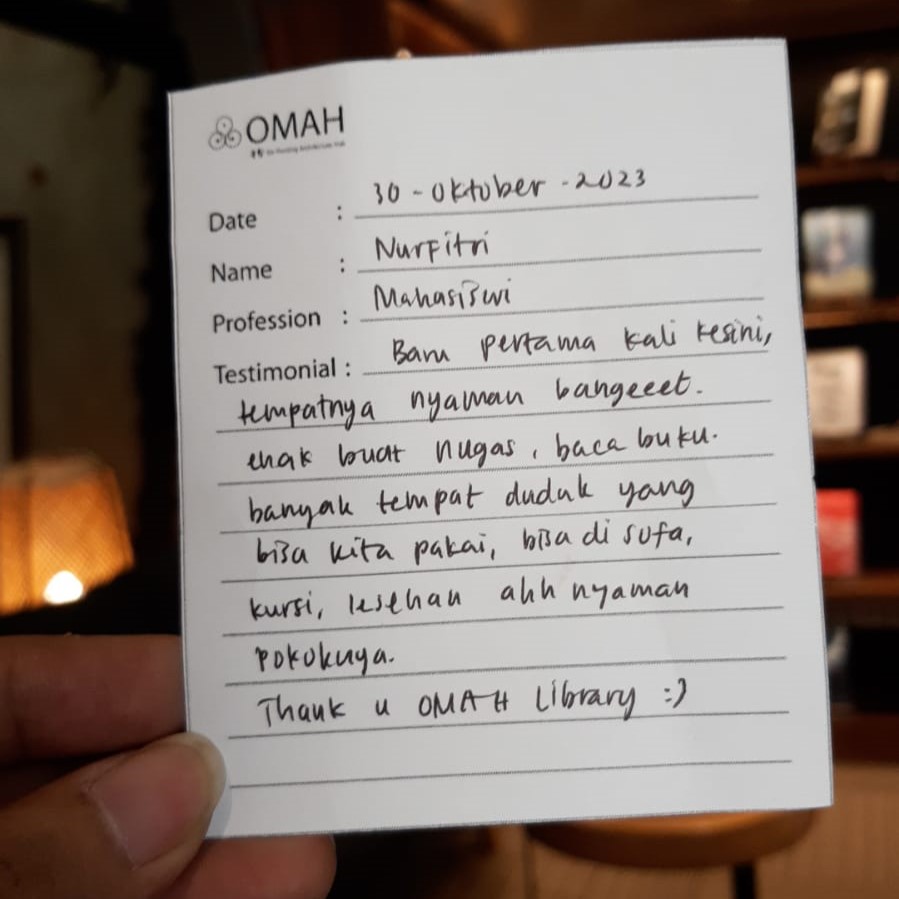 OMAH
Date : 30 - Oktober - 2023
Name : Nurfitri
Profession : Mahasiswi
Testimonial : Baru pertama kali kesini,
tempatnya nyaman bangeeet.
enak buat nugas, baca buku.
banyak tempat duduk yang
bisa kita pakai, bisa di sofa,
kursi, lesehan ahh nyaman
pokoknya.
Thank u OMAH Library :)